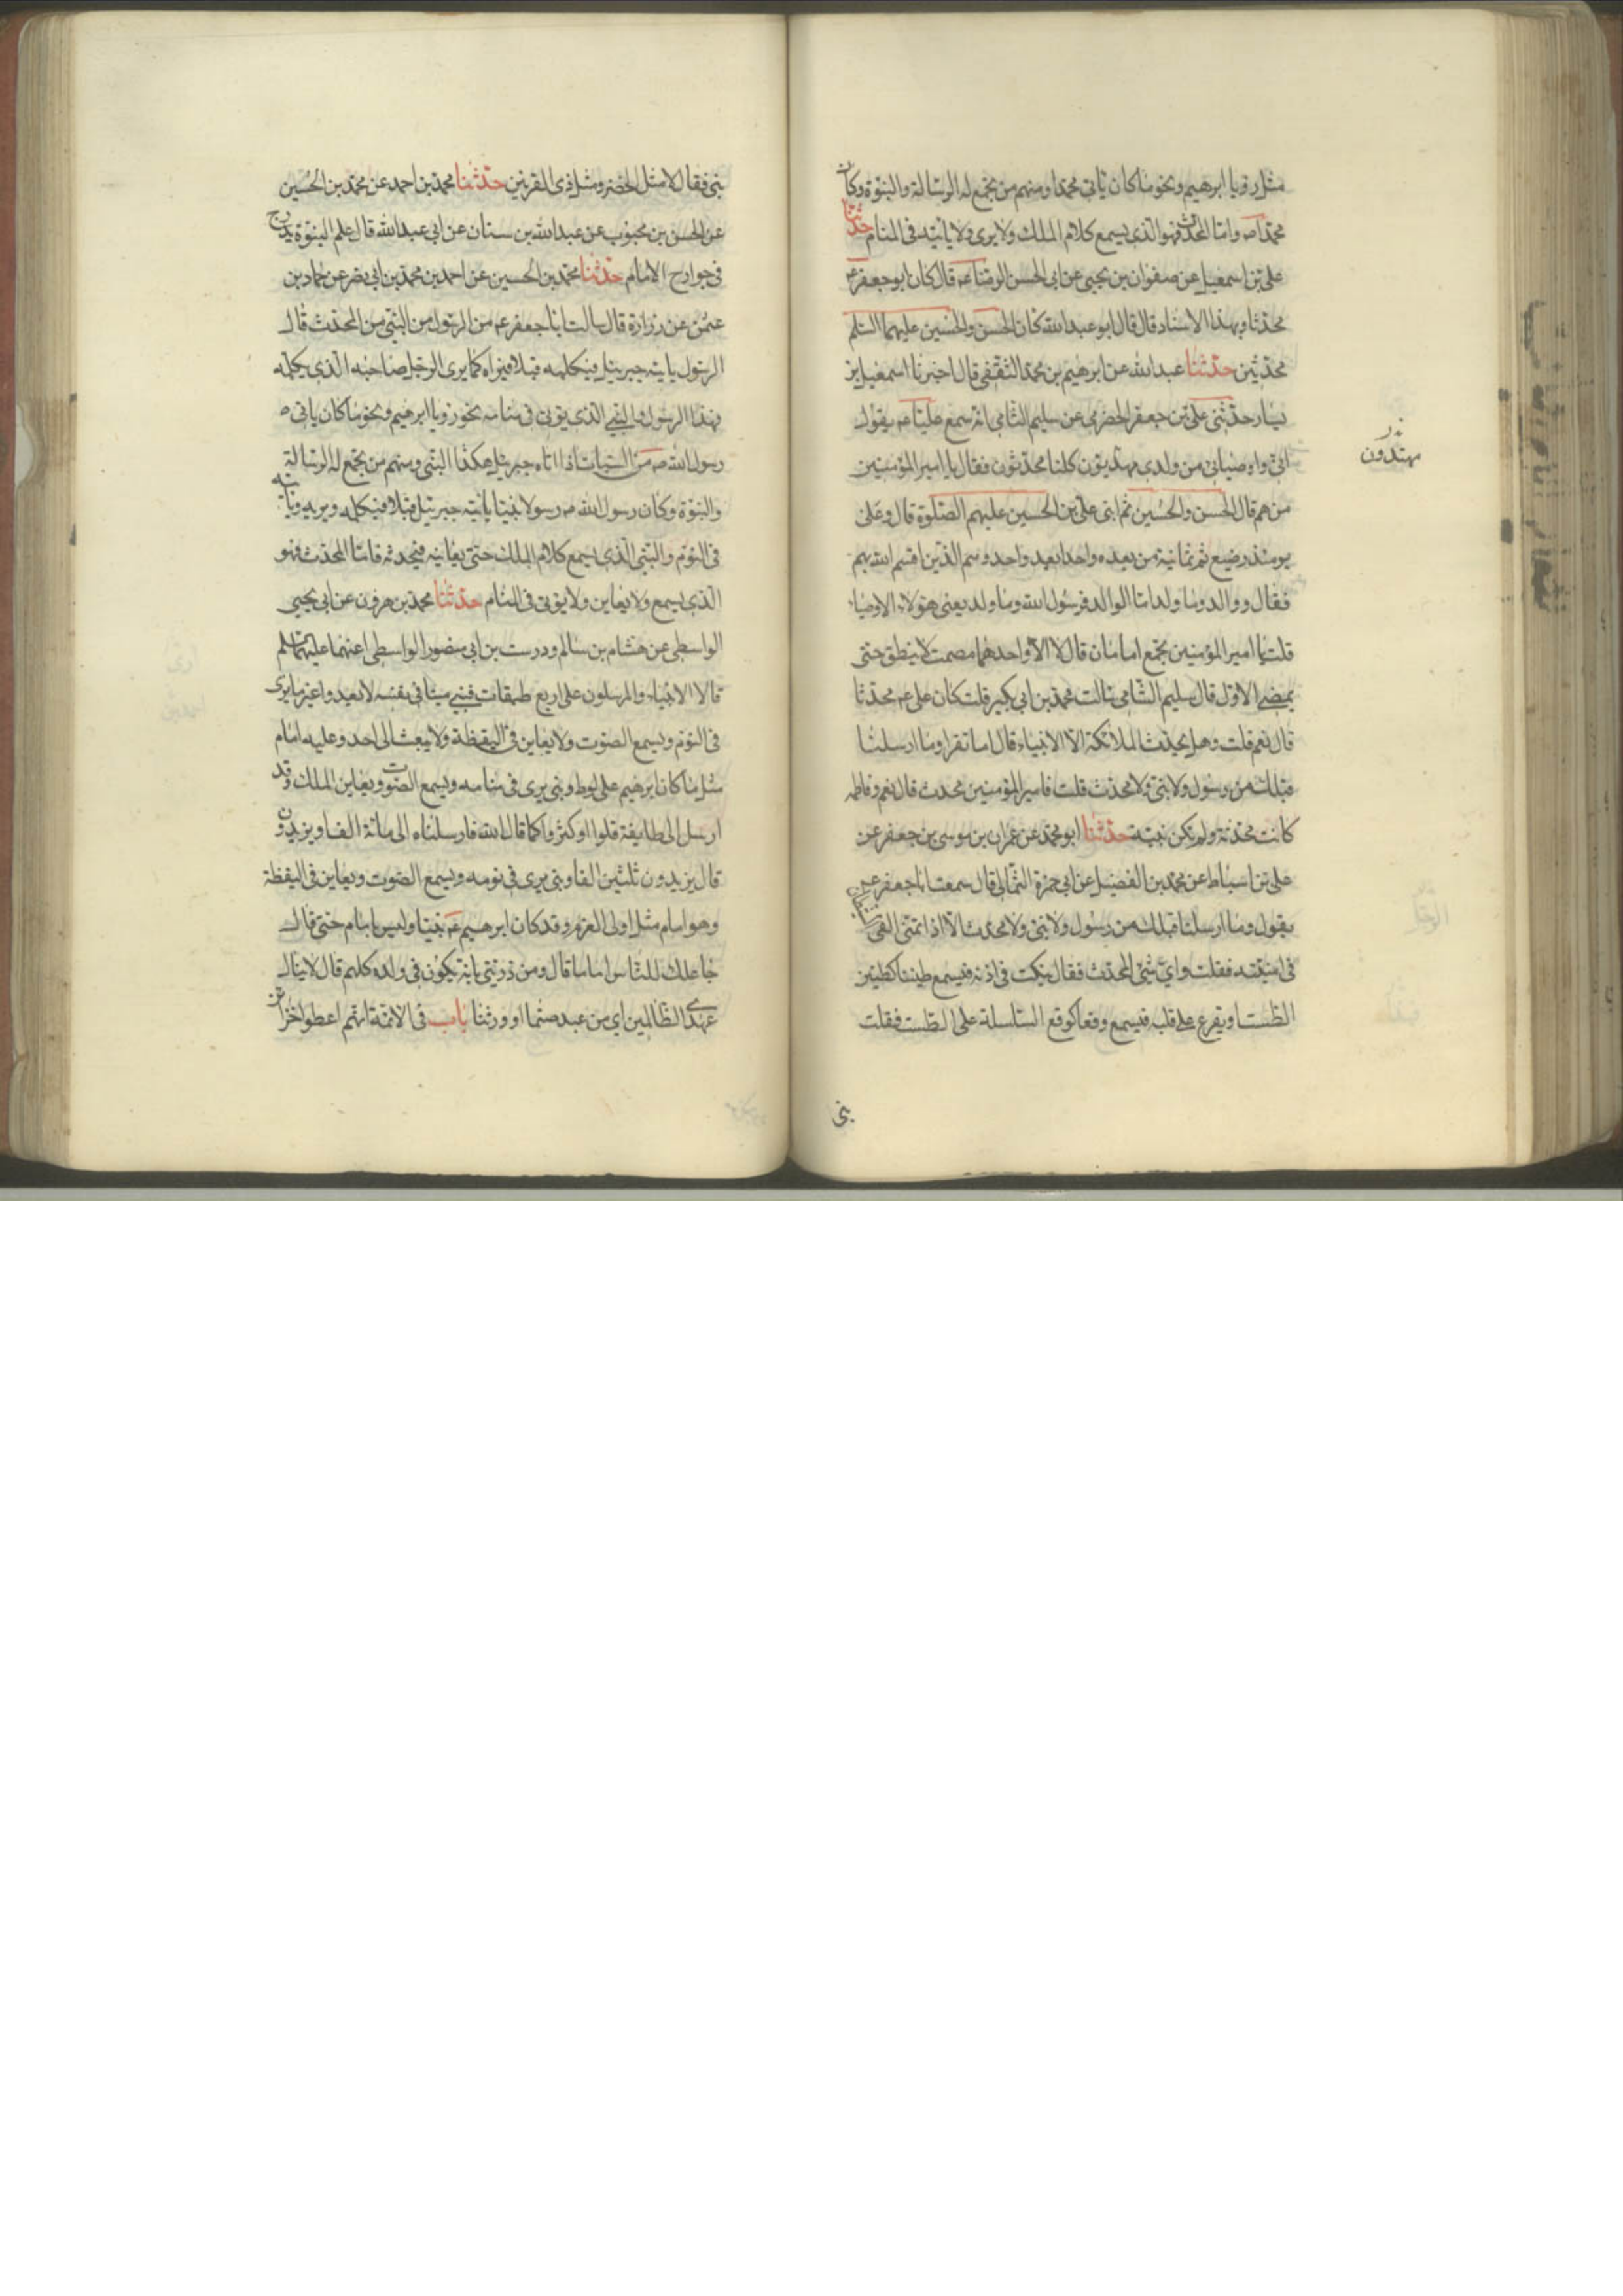 مثل رويا ابرهيم ونحو ما كان ياتى محمدا ومنهم من يجمع له الرسالة والنبوة وكان
محمد ص واما المحدث فهو الذى يسمع كلام الملك ولا يرى ولا ياتيه فى المنام حدثنا
على بن اسمعيل عن صفوان بن يحيى عن ابى الحسن الرضا ع قال كان ابو جعفر ع
محدثا وبهذا الاسناد قال قال ابو عبد الله كان الحسن والحسين عليهما السلم
محدثين حدثنا عبد الله عن ابرهيم بن محمد الثقفى قال اخبرنا اسمعيل بن
يسار حدثنى على بن جعفر الحضرمى عن سليم الشامى انه سمع عليا ع يقول
انى واوصيائى من ولدى مهديون كلنا محدثون فقلت يا امير المؤمنين
من هم قال الحسن والحسين ثم ابنى على بن الحسين عليهم الصلوة قال وعلى
يومئذ رضيع ثم ثمانية من بعده واحدا بعد واحد وهم الذين اقسم الله بهم
فقال ووالد وما ولد اما الوالد فرسول الله وما ولد يعنى هؤلاء الاوصياء
قلت يا امير المؤمنين يجتمع امامان قال لا الا واحدهما مصمت لا ينطق حتى
يمضى الاول قال سليم الشامى سالت محمد بن ابى بكير قلت كان على ع محدثا
قال نعم قلت وهل يحدث الملائكة الا الانبياء قال اما تقرا وما ارسلنا
قبلك من رسول ولا نبى ولا محدث قلت فامير المؤمنين محدث قال نعم وفاطمه
كانت محدثة ولم تكن نبية حدثنا ابو محمد عن عمران بن موسى بن جعفر عن
على بن اسباط عن محمد بن الفضيل عن ابى حمزة الثمالى قال سمعت ابا جعفر ع
يقول وما ارسلنا قبلك من رسول ولا نبى ولا محدث الا اذا تمنى القى الشيطان
فى امنيته فقلت واى شئ المحدث فقال ينكت فى اذنه فيسمع طنينا كطنين
الطست او يقرع على قلبه فيسمع وقعا كوقع السلسلة على الطست فقلت
نبى
مهتدون
نبى فقال لا مثل الخضر ومثل ذى القرنين حدثنا محمد بن احمد عن محمد بن الحسين
عن الحسن بن محبوب عن عبد الله بن سنان عن ابى عبد الله قال علم النبوة يدرج
فى جوارح الامام حدثنا محمد بن الحسين عن احمد بن محمد بن ابى نصر عن حماد بن
عثمن عن زرارة قال سالت ابا جعفر ع من الرسول من النبى من المحدث قال
الرسول ياتيه جبرئيل فيكلمه قبلا فيراه كما يرى الرجل صاحبه الذى يكلمه
فهذا الرسول والنبى الذى يؤتى فى منامه نحو رؤيا ابرهيم ونحو ما كان ياتى
رسول الله ص من السبات اذا اتاه جبرئيل هكذا النبى ومنهم من يجمع له الرسالة
والنبوة وكان رسول الله ص رسولا نبيا ياتيه جبرئيل قبلا فيكلمه ويريه وياتيه
فى النوم والنبى الذى يسمع كلام الملك حتى يعاينه فيحدثه فاما المحدث فهو
الذى يسمع ولا يعاين ولا يؤتى فى المنام حدثنا محمد بن هرون عن ابى يحيى
الواسطى عن هشام بن سالم ودرست بن ابى منصور الواسطى عنهما عليهما السلم
قالا الانبياء والمرسلون على اربع طبقات فنبى منبا فى نفسه لا يعدو غيرها يرى
فى النوم ويسمع الصوت ولا يعاين فى اليقظة ولا يبعث الى احد وعليه امام
مثل ما كان ابرهيم على لوط ونبى يرى فى منامه ويسمع الصوت ويعاين الملك وقد
ارسل الى طايفة قلوا او كثروا كما قال الله فارسلناه الى مائة الف او يزيدون
قال يزيدون ثلثين الفا ونبى يرى فى نومه ويسمع الصوت ويعاين فى اليقظة
وهو امام مثل اولى العزم وقد كان ابرهيم ع نبيا وليس بامام حتى قال
جاعلك للناس اماما قال ومن ذريتى بانه يكون فى ولده كلهم قال لا ينال
عهدى الظالمين اى من عبد صنما او وثنا باب فى الائمة انهم اعطوا خزائن